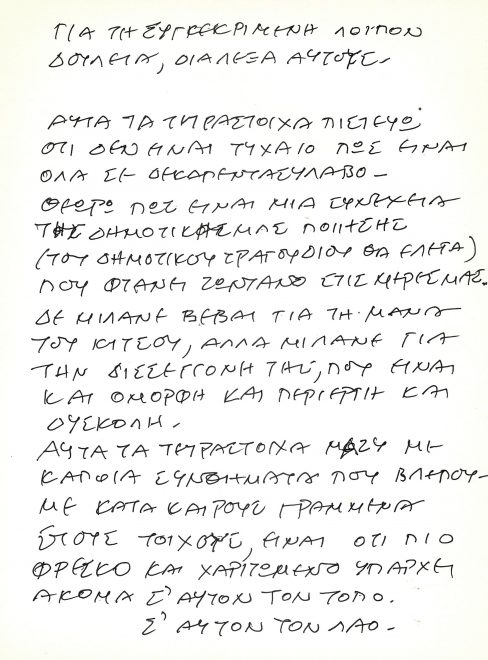 ΓΙΑ ΤΗ ΣΥΓΚΕΚΡΙΜΕΝΗ ΛΟΙΠΟΝ
ΔΟΥΛΕΙΑ, ΔΙΑΛΕΞΑ ΑΥΤΟΥΣ.
ΑΥΤΑ ΤΑ ΤΕΤΡΑΣΤΟΙΧΑ ΠΙΣΤΕΥΩ
ΟΤΙ ΔΕΝ ΕΙΝΑΙ ΤΥΧΑΙΟ ΠΩΣ ΕΙΝΑΙ
ΟΛΑ ΣΕ ΔΕΚΑΠΕΝΤΑΣΥΛΑΒΟ -
ΘΕΩΡΩ ΠΩΣ ΕΙΝΑΙ ΜΙΑ ΣΥΝΕΧΕΙΑ
ΤΗΣ ΔΗΜΟΤΙΚΗΣ ΜΑΣ ΠΟΙΗΣΗΣ
(ΤΟΥ ΔΗΜΟΤΙΚΟΥ ΤΡΑΓΟΥΔΙΟΥ ΘΑ ΕΛΕΓΑ)
ΠΟΥ ΦΤΑΝΕΙ ΖΩΝΤΑΝΟ ΣΤΙΣ ΜΕΡΕΣ ΜΑΣ.
ΔΕ ΜΙΛΑΝΕ ΒΕΒΑΙ ΓΙΑ ΤΗ ΜΑΝΑ
ΤΟΥ ΚΙΤΣΟΥ, ΑΛΛΑ ΜΙΛΑΝΕ ΓΙΑ
ΤΗΝ ΔΙΣΣΕΓΓΟΝΗ ΤΗΣ, ΠΟΥ ΕΙΝΑΙ
ΚΑΙ ΟΜΟΡΦΗ ΚΑΙ ΠΕΡΙΕΡΓΗ ΚΑΙ
ΔΥΣΚΟΛΗ.
ΑΥΤΑ ΤΑ ΤΕΤΡΑΣΤΟΙΧΑ ΜΑΖΥ ΜΕ
ΚΑΠΟΙΑ ΣΥΝΘΗΜΑΤΑ ΠΟΥ ΒΛΕΠΟΥ-
ΜΕ ΚΑΤΑ ΚΑΙΡΟΥΣ ΓΡΑΜΜΕΝΑ
ΣΤΟΥΣ ΤΟΙΧΟΥΣ, ΕΙΝΑΙ ΟΤΙ ΠΙΟ
ΦΡΕΣΚΟ ΚΑΙ ΧΑΡΙΤΩΜΕΝΟ ΥΠΑΡΧΕΙ
ΑΚΟΜΑ Σ' ΑΥΤΟΝ ΤΟΝ ΤΟΠΟ.
Σ' ΑΥΤΟΝ ΤΟΝ ΛΑΟ -